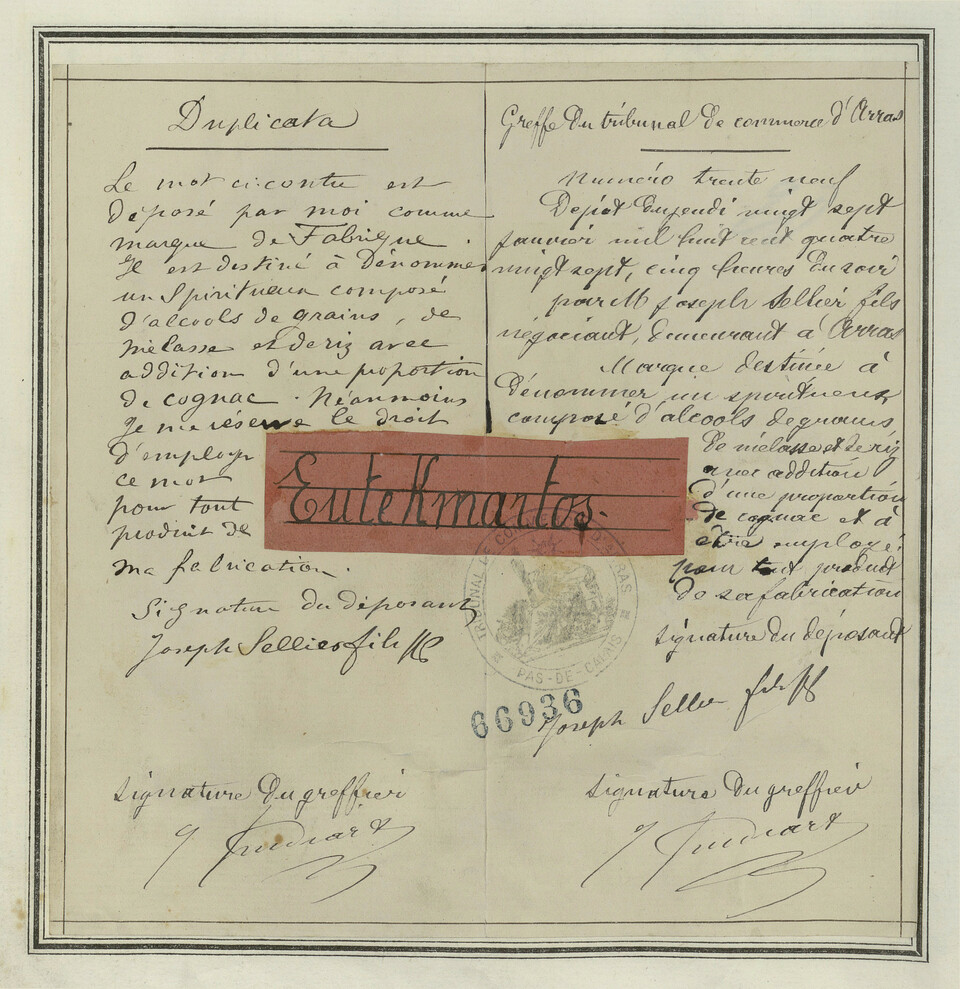 Duplicata
Le mot ci-contre est
déposé par moi comme
marque de Fabrique.
Il est destiné à Dénommer
un Spiritueux composé
d'alcools de grains, de
mélasse et de riz avec
addition d'une proportion
de cognac. Néanmoins
je me réserve le droit
d'employer
ce mot
pour tout
produit de
ma fabrication.
Signature du déposant
Joseph Sellier fils
Signature du greffier
Eutekmartos.
Greffe du tribunal de commerce d'Arras
Numéro trente neuf
Dépôt du jeudi vingt sept
janvier mil huit cent quatre
vingt sept, cinq heures du soir
par M Joseph Sellier fils
négociant, demeurant à Arras
Marque destinée à
Dénommer un spiritueux
composé d'alcools de grains,
de mélasse et de riz
avec addition
d'une proportion
de cognac et à
être employé
pour tout produit
de sa fabrication
Signature du déposant
Joseph Sellier fils
TRIBUNAL DE COMMERCE D'ARRAS
PAS-DE-CALAIS
66936
Signature du greffier